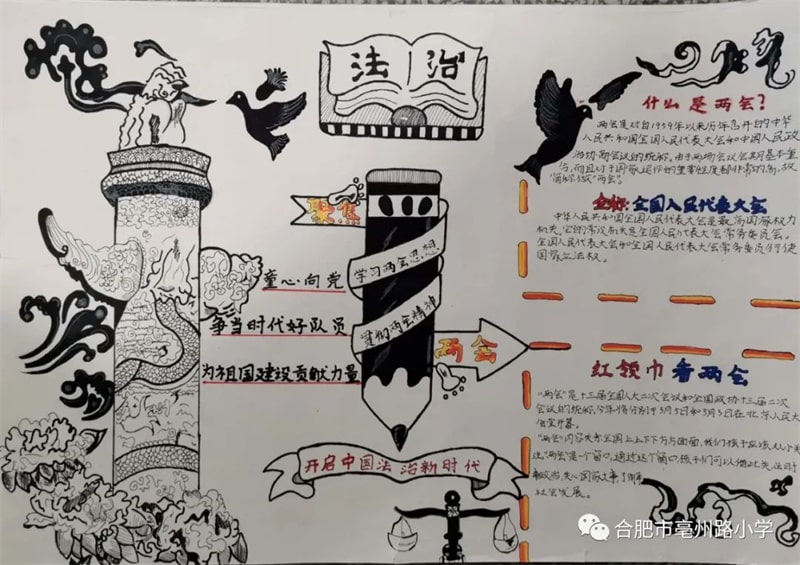 法治
什么是两会?
两会是对自1959年以来历年召开的中华
人民共和国全国人民代表大会和中国人民政
治协商会议的统称。由于两场会议会期基本重
合,而且对于国家运作的重要性度都非常的高,故
简称做"两会"。
全称:全国人民代表大会
中华人民共和国全国人民代表大会是最高国家权力
机关。它的常设机关是全国人民代表大会常务委员会。
全国人民代表大会和全国人民代表大会常务委员会行使
国家立法权。
聚焦
学习两会思想
贯彻两会精神
两会
童心向党
争当时代好队员
为祖国建设贡献力量
开启中国法治新时代
红领巾看两会
"两会"是十三届全国人大二次会议和全国政协十三届二次
会议的统称,今年将分别于3月5日和3月3日在北京人民大
会堂开幕。
"两会"内容关系全国上上下下方方面面,我们孩子应该从小关
注。"两会"是个窗口,通过这个窗口,孩子们可以借此关注时
事政治,关心国家大事了解
社会发展。
合肥市亳州路小学